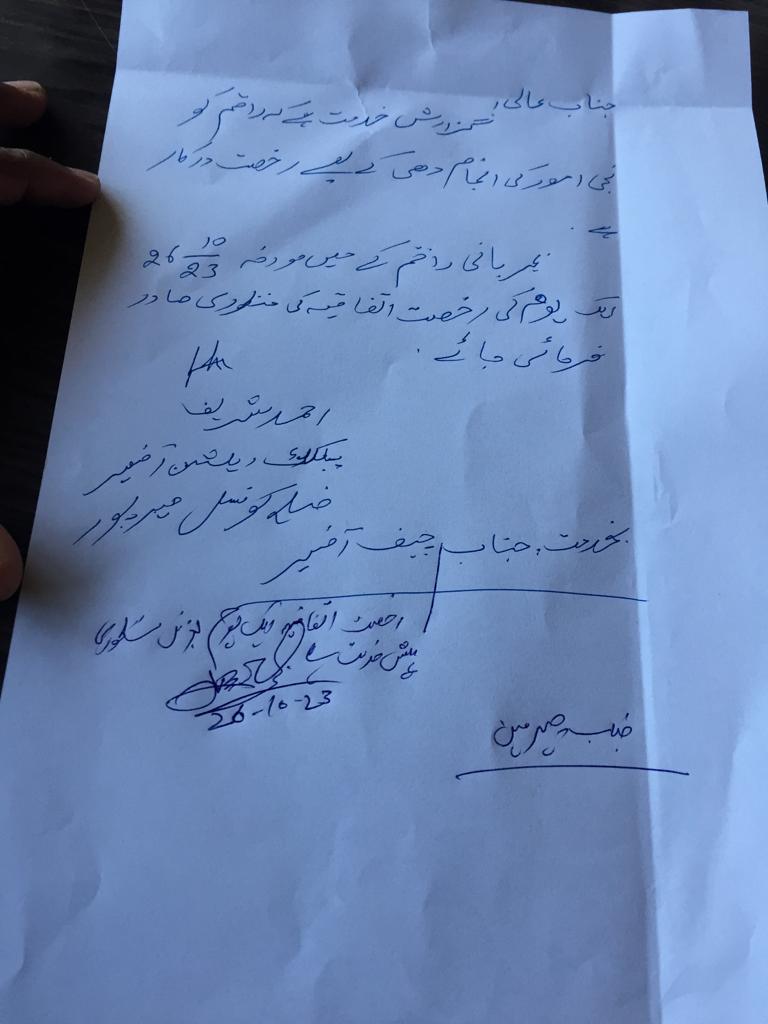 جناب عالی!
گزارش خدمت ہے کہ راقم کو
نجی امور کی انجام دہی کے لیے رخصت درکار
ہے.
مہربانی راقم کے حق میں مورخہ 26 10/23
ایک یوم کی رخصت اتفاقیہ کی منظوری صادر
فرمائی جائے.
احمد شریف
پبلک ریلیشن آفیسر
ضلع کونسل میرپور
بخدمت جناب چیف آفیسر
رخصت اتفاقیہ ایک یوم بغرض منظوری
پیش خدمت ہے
26-10-23
جناب چیرمین